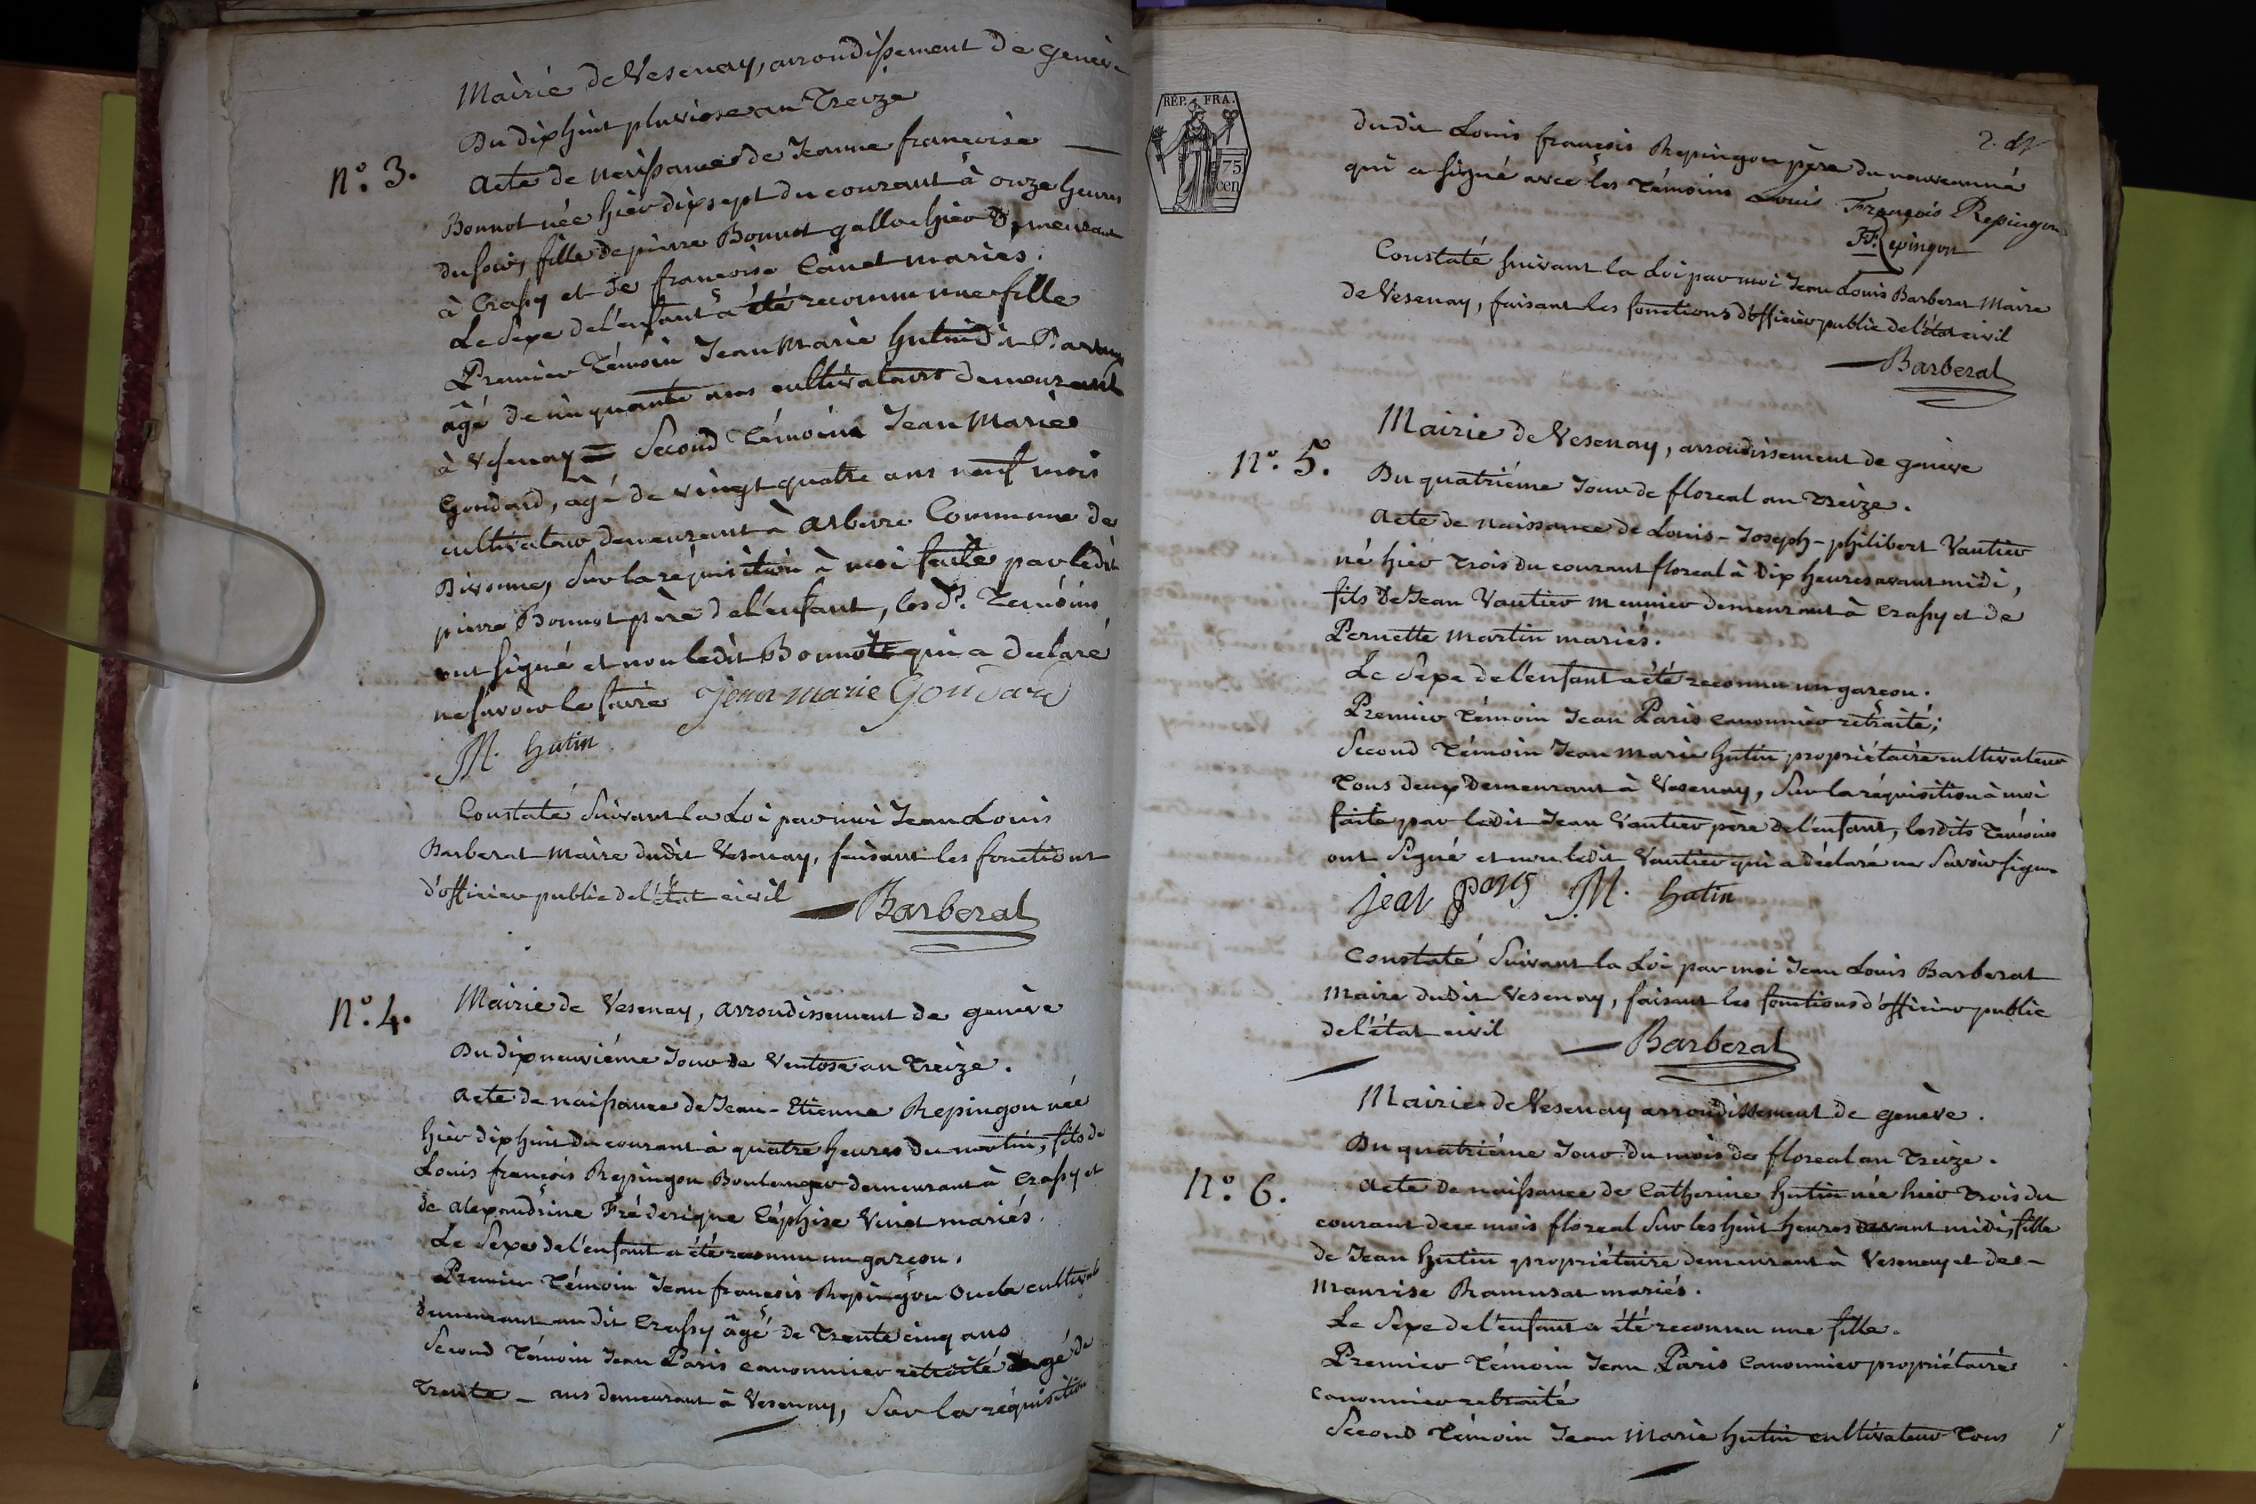 Mairie de Vesenay, arrondissement de Genève
Du dixhuit pluviose an Treize
N.º 3.
Acte de naissance de Jeanne françoise
Bonnot née hier dixsept du courant à onze heures
du soir, fille de pierre Bonnot demeurant
à Crassy et de françoise Canet mariés.
Le Sexe de l'enfant a été reconnu une fille
Premier Témoin Jean Marie hutin dit
âgé de cinquante ans cultivateur demeurant
à Vesenay = Second Témoin Jean Marie
Goudard, âgé de vingt quatre ans neuf mois
cultivateur demeurant à Arbere Commune de
Divonne, Sur la réquisition à moi faite par ledit
pierre Bonnot père de l'enfant, les dts. Témoins
ont signé et non ledit Bonnot qui a déclaré
ne savoir le faire Jean marie Goudard
M. hutin
Constaté Suivant la Loi par moi Jean Louis
Barberat Maire dudit Vesenay, faisant les fonctions
d'officier public de l'état civil Barberat
N.º 4.
Mairie de Vesenay, arrondissement de genève
Du dixneuviéme Jour de Ventose an Treize.
Acte de naissance de Jean-Etienne Repingon née
hier dixhuit du courant à quatre heures du matin, fils de
Louis françois Repingon Boulanger demeurant à Crassy et
de Alexandrine Fréderique Céphise Vinet mariés.
Le Sexe de l'enfant a été reconnu un garçon.
Premier Témoin Jean françois Repingon Oncle
demeurant au dit Crassy âgé de Trente cinq ans
Second Témoin Jean Paris canonnier retraité âgé de
Trente - ans demeurant à Vesenay, Sur la réquisition
RÉP. FRA.
75
cen
2.
dudit Louis françois Repingon père du nouveau né
qui a signé avec les Témoins Louis François Repingon
FF. Repingon
Constaté suivant la Loi par moi Jean Louis Barberat Maire
de Vesenay, faisant les fonctions d'officier public de l'état civil
Barberat
Mairie de Vesenay, arrondissement de genève
N.º 5.
Du quatriéme Jour de floreal an Treize.
Acte de naissance de Louis-Joseph-philibert Vautier
né hier Trois du courant floreal à Dix heures avant midi,
fils de Jean Vautier meunier demeurant à Crassy et de
Pernette Martin mariés.
Le Sexe de l'enfant a été reconnu un garçon.
Premier Témoin Jean Paris canonnier retraité;
Second Témoin Jean Marie hutin propriétaire cultivateur
Tous deux Demeurant à Vesenay, Sur la réquisition à moi
faite par ledit Jean Vautier père de l'enfant, lesdits Témoins
ont Signé et non ledit Vautier qui a déclaré ne Savoir signer
jean paris M. hutin
Constaté Suivant la Loi par moi Jean Louis Barberat
Maire dudit Vesenay, faisant les fonctions d'officier public
de l'état civil Barberat
Mairie de Vesenay arrondissement de genève.
Du quatriéme Jour du mois de floreal an Treize.
N.º 6.
Acte de naissance de Catherine hutin née hier Trois du
courant de ce mois floreal Sur les huit heures avant midi, fille
de Jean hutin propriétaire demeurant à Vesenay et de -
Maurise Ramusat mariés.
Le Sexe de l'enfant a été reconnu une fille.
Premier Témoin Jean Paris Canonnier propriétaire
Canonnier retraité
Second Témoin Jean Marie hutin cultivateur Tous